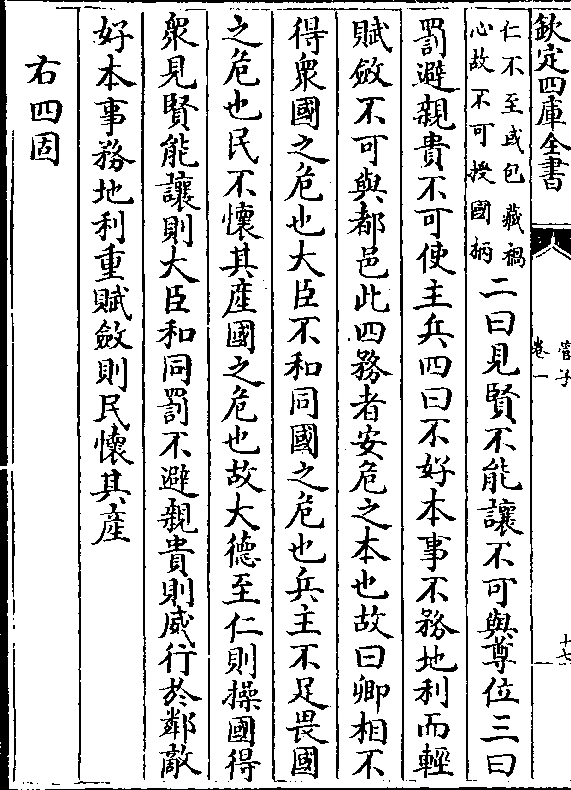 欽定四庫全書
管子
卷一
十七
仁不至或包藏禍
心故不可授國柄
二曰見賢不能讓不可與尊位三曰
罰避親貴不可使主兵四曰不好本事不務地利而輕
賦斂不可與都邑此四務者安危之本也故曰卿相不
得衆國之危也大臣不和同國之危也兵主不足畏國
之危也民不懷其產國之危也故大德至仁則操國得
衆見賢能讓則大臣和同罰不避親貴則威行於鄰敵
好本事務地利重賦斂則民懷其產
右四固